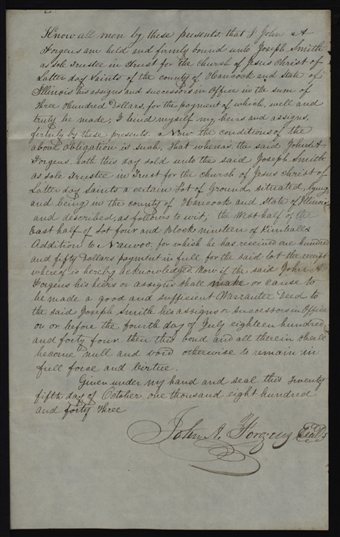 Know all men by these presents that I John A
Forgeus am held and firmly bound unto Joseph Smith
as sole Trustee in Trust for the Church of Jesus Christ of
Latter day Saints of the county of Hancock and State of
Illinois his assigns and successors in Office in the sum of
three Hundred Dollars for the payment of which, well and
truly be made, I bind myself my heirs and assigns,
firmly by these presents. Now the conditions of the
above Obligation is such, that whereas the said John A
Forgeus. hath this day sold unto the said Joseph Smith
as sole Trustee in Trust for the church of Jesus christ of
Latter day Saints a certain Lot of Ground, situated, lying
and being in the county of Hancock and State of Illinois
and described as follows to wit, the West half of the
East half of Lot four and Block nineteen of Kimballs
Addition to Nauvoo, for which he has received one hundred
and fifty Dollars payment in full for the said lot the receipt
where of is hereby acknowledged Now if the said John A
Forgeus his heirs or assigns shall make or cause to
be made a good and sufficient Warrantee Deed to
the said Joseph Smith his assigns or Successors in Office
on or before the fourth day of July eighteen hundred
and forty four then this bond and all therein shall
become null and void otherwise to remain in
full forse and Vertue.
Given under my hand and seal this twenty
fifth day of October one thousand eight hundred
and forty three
John A. Forgeus